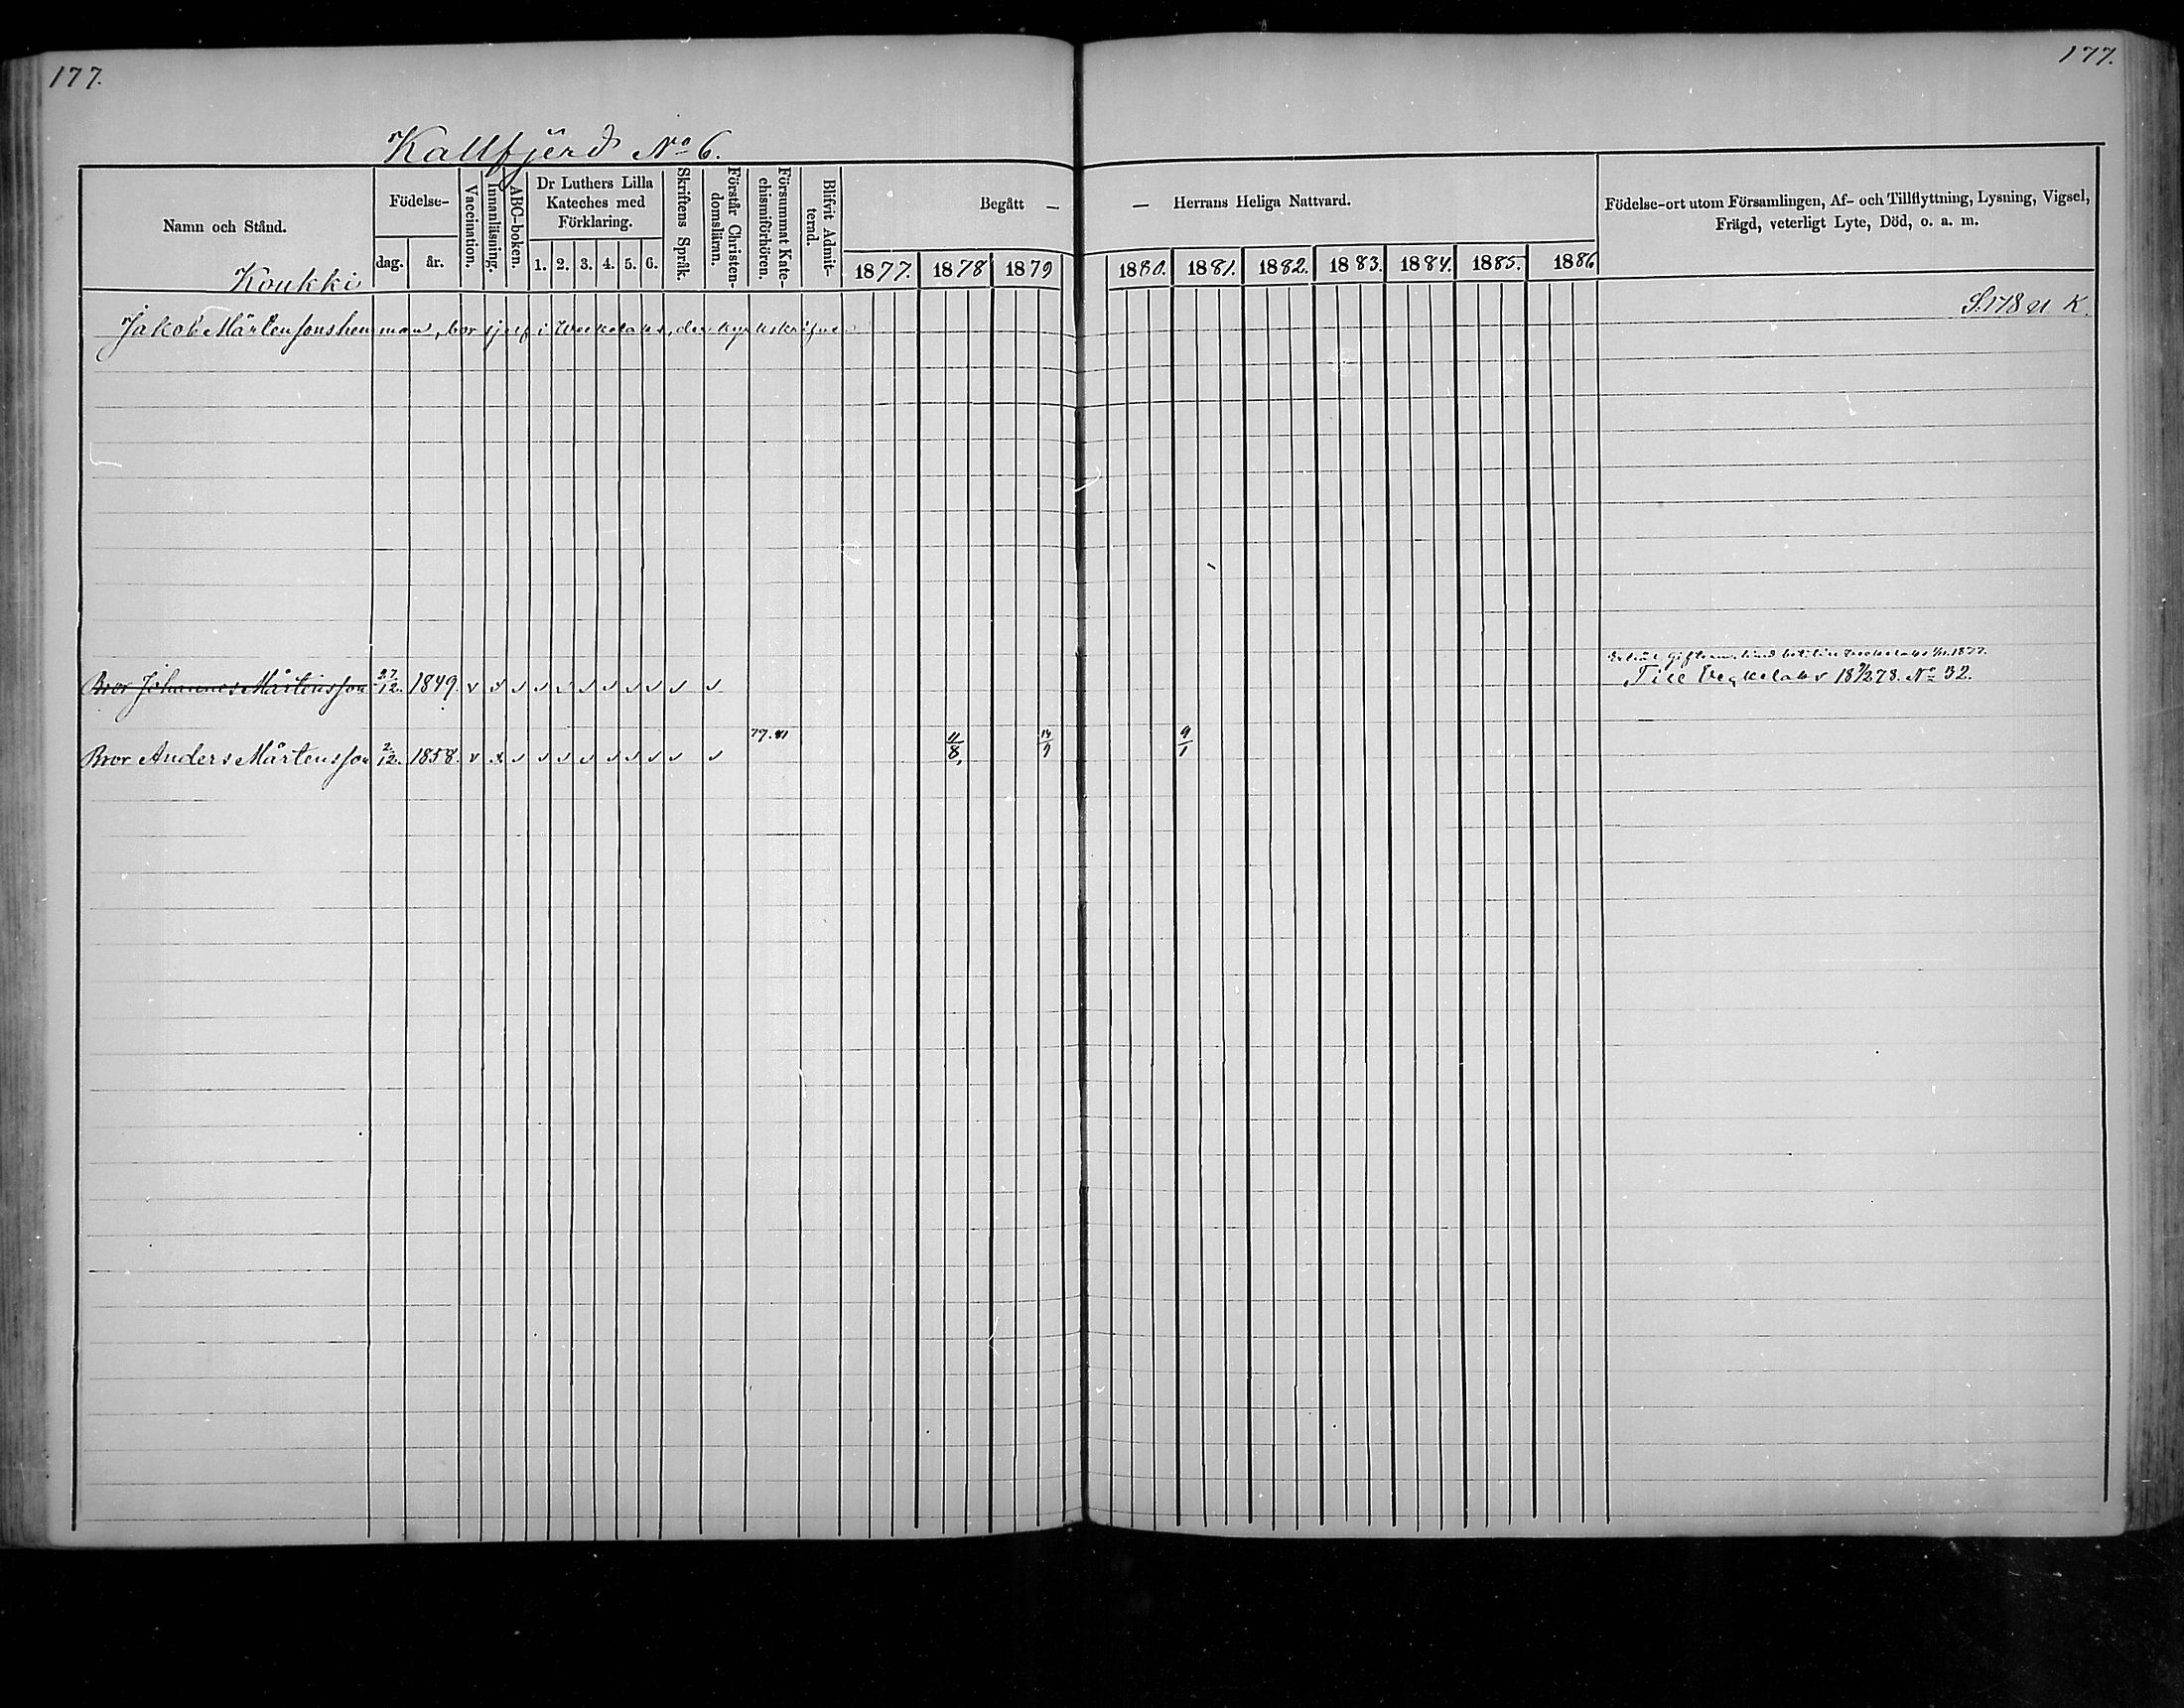 177.
177.
Kallfjerd No 6.
Namn och Stånd.
Födelse-
dag.
år.
Vaccination.
Innanläsning.
ABC-boken.
Dr Luthers Lilla
Kateches med
Förklaring.
1. 2. 3. 4. 5. 6.
Skriftens Språk.
Förstår Christen-
domsläran.
Försummat Kate-
chismiförhören.
Blifvit Admit-
terad.
Begått —
— Herrans Heliga Nattvard.
1877. 1878 1879 1880. 1881. 1882. 1883. 1884. 1885. 1886
Födelse-ort utom Församlingen, Af- och Tillflyttning, Lysning, Vigsel,
Frägd, veterligt Lyte, Död, o. a. m.
Koukki
S. 178 K.
Jakob Mårtensons hemman, bor sjelf i
Bror Johannes Mårtensson 27/12. 1849. v x v v v v v v v v v
Till No 32.
77. 81
Bror Anders Mårtensson 2/12. 1858. v x v v v v v v v v v 11/8, 14/9 9/1